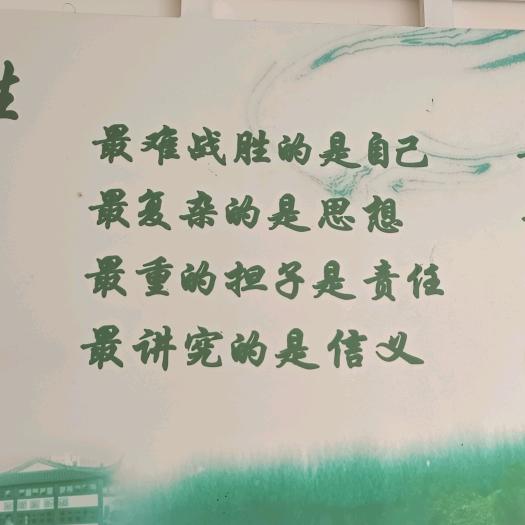 最难战胜的是自己
最复杂的是思想
最重的担子是责任
最讲究的是信义